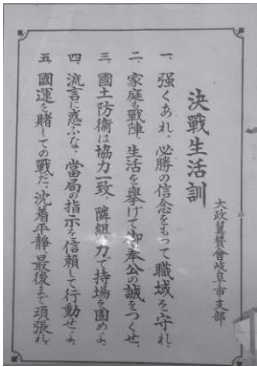 決戰生活訓
大政翼賛會岐阜市支部
一、强くあれ、必勝の信念をもつて職域を守れ、
二、家庭も戰陣、生活を擧げて御奉公の誠をつくせ、
三、國土防衞は協力一致、隣組の力で持場を固めよ、
四、流言に惑ふな、當局の指示を信賴して行動せよ、
五、國運を賭しての戰だ、沈着平靜最後まで頑張れ、